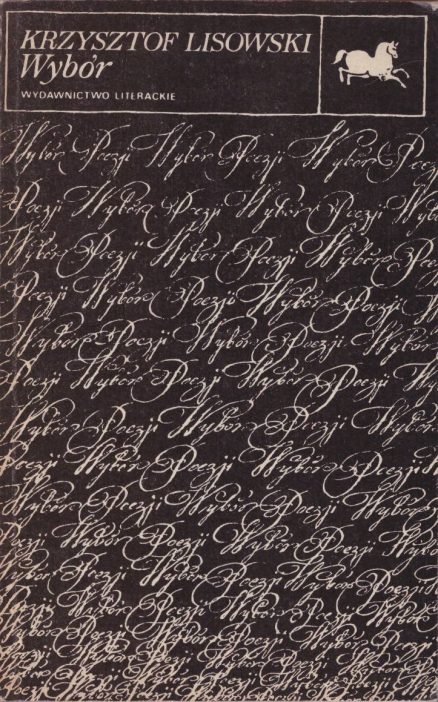 KRZYSZTOF LISOWSKI
Wybór
WYDAWNICTWO LITERACKIE
Wybór Poezji Wybór Poezji Wybór Poezji
Poezji Wybór Poezji Wybór Poezji Wybó
Wybór Poezji Wybór Poezji Wybór Poezji
Poezji Wybór Poezji Wybór Poezji W
Wybór Poezji Wybór Poezji Wybór
Poezji Wybór Poezji Wybór Poezji W
Wybór Poezji Wybór Poezji Wybór
Poezji Wybór Poezji Wybór Poezji
Wybór Poezji Wybór Poezji Wybór
Poezji Wybór Poezji Wybór Poezji Wybó
Wybór Poezji Wybór Poezji Wybór Poezji
Poezji Wybór Poezji Wybór Poezji Wybór